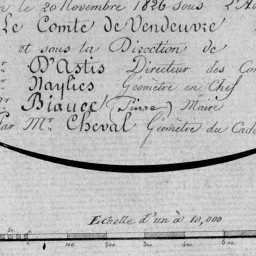 le 20 Novembre 1826 sous
Le Comte de Vendeuvre
et sous la Direction de
Mr. D'Astis Directeur des Con
Mr. Naylies Géomètre en Chef
Mr. Biauce (Pierre) Maire
Par Mr. Cheval Géomètre du Cada
Echelle d'un à 10,000
100 200 300 400 500 600